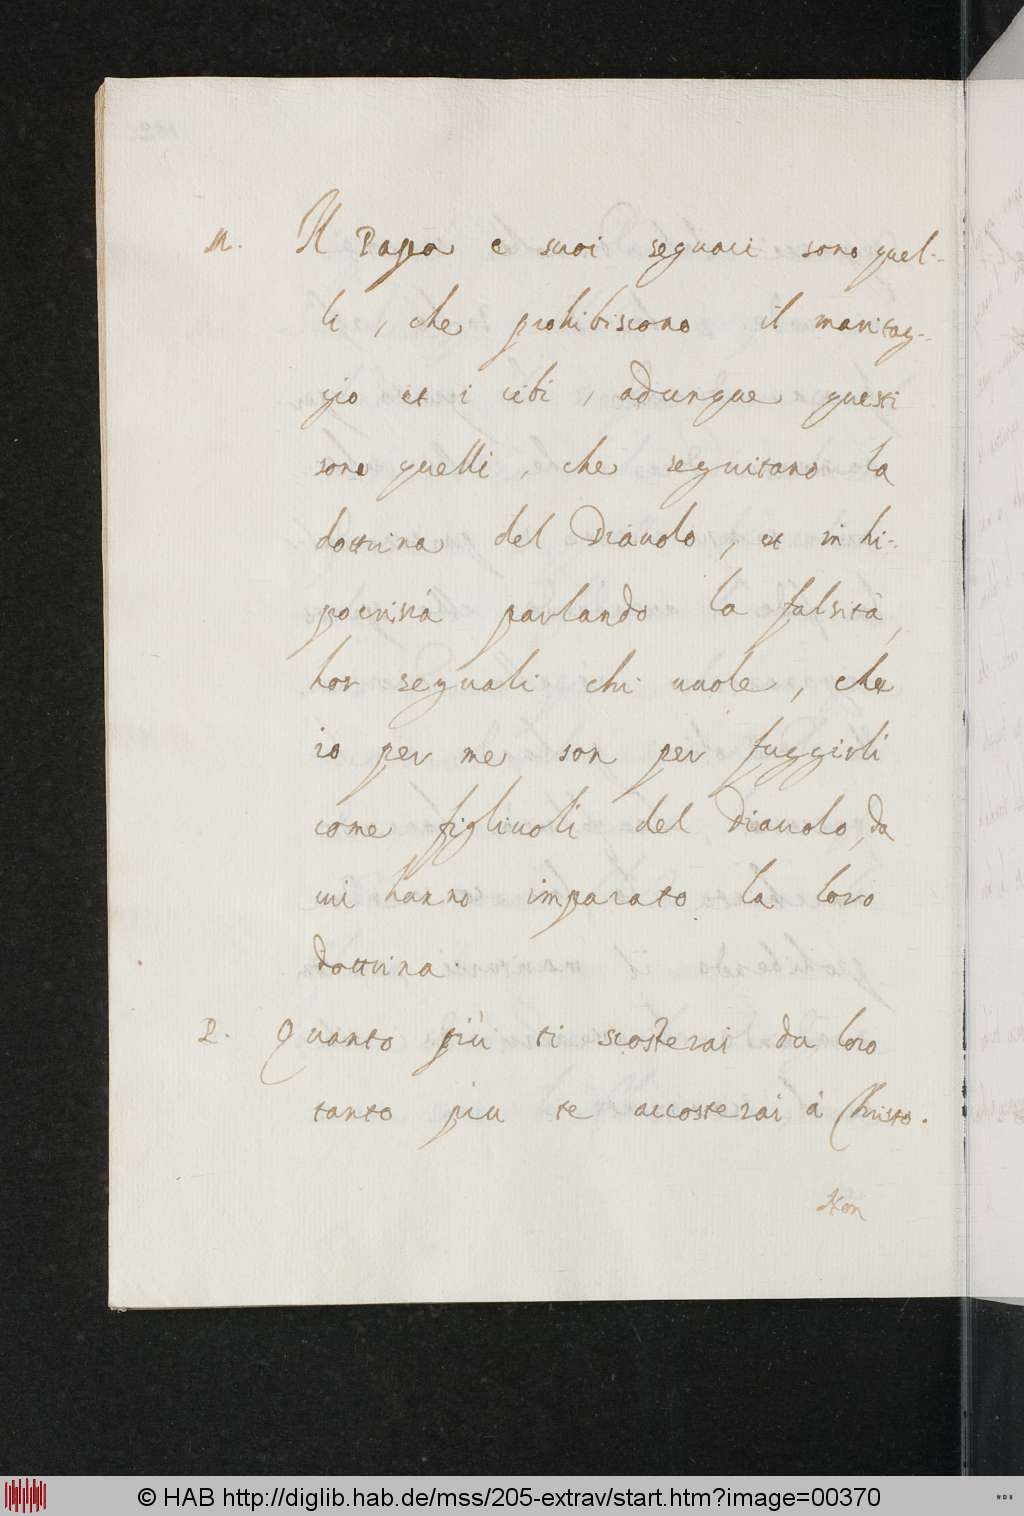 M. Il Papa e suoi seguaci sono quel-
li, che prohibiscono il maritag-
gio et i cibi, adunque questi
sono quelli, che seguitano la
dottrina del Diavolo, et in hi-
pocrisia parlando la falsità,
hor seguali chi uuole, che
io per me son per fuggirli
come figliuoli del Diauolo, da
cui hanno imparato la loro
dottrina.
P. Quanto più ti scosterai da loro
tanto piu te accosterai à Christo.
Non
© HAB http://diglib.hab.de/mss/205-extrav/start.htm?image=00370